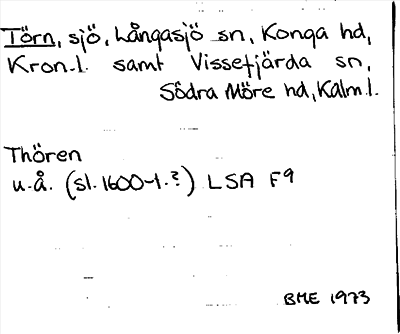 Törn, sjö, Långasjö sn, Konga hd,
Kron.l. samt Vissefjärda sn,
Södra Möre hd, Kalm.l.
Thören
u.å. (sl. 1600-t.?) LSA F9
BME 1973